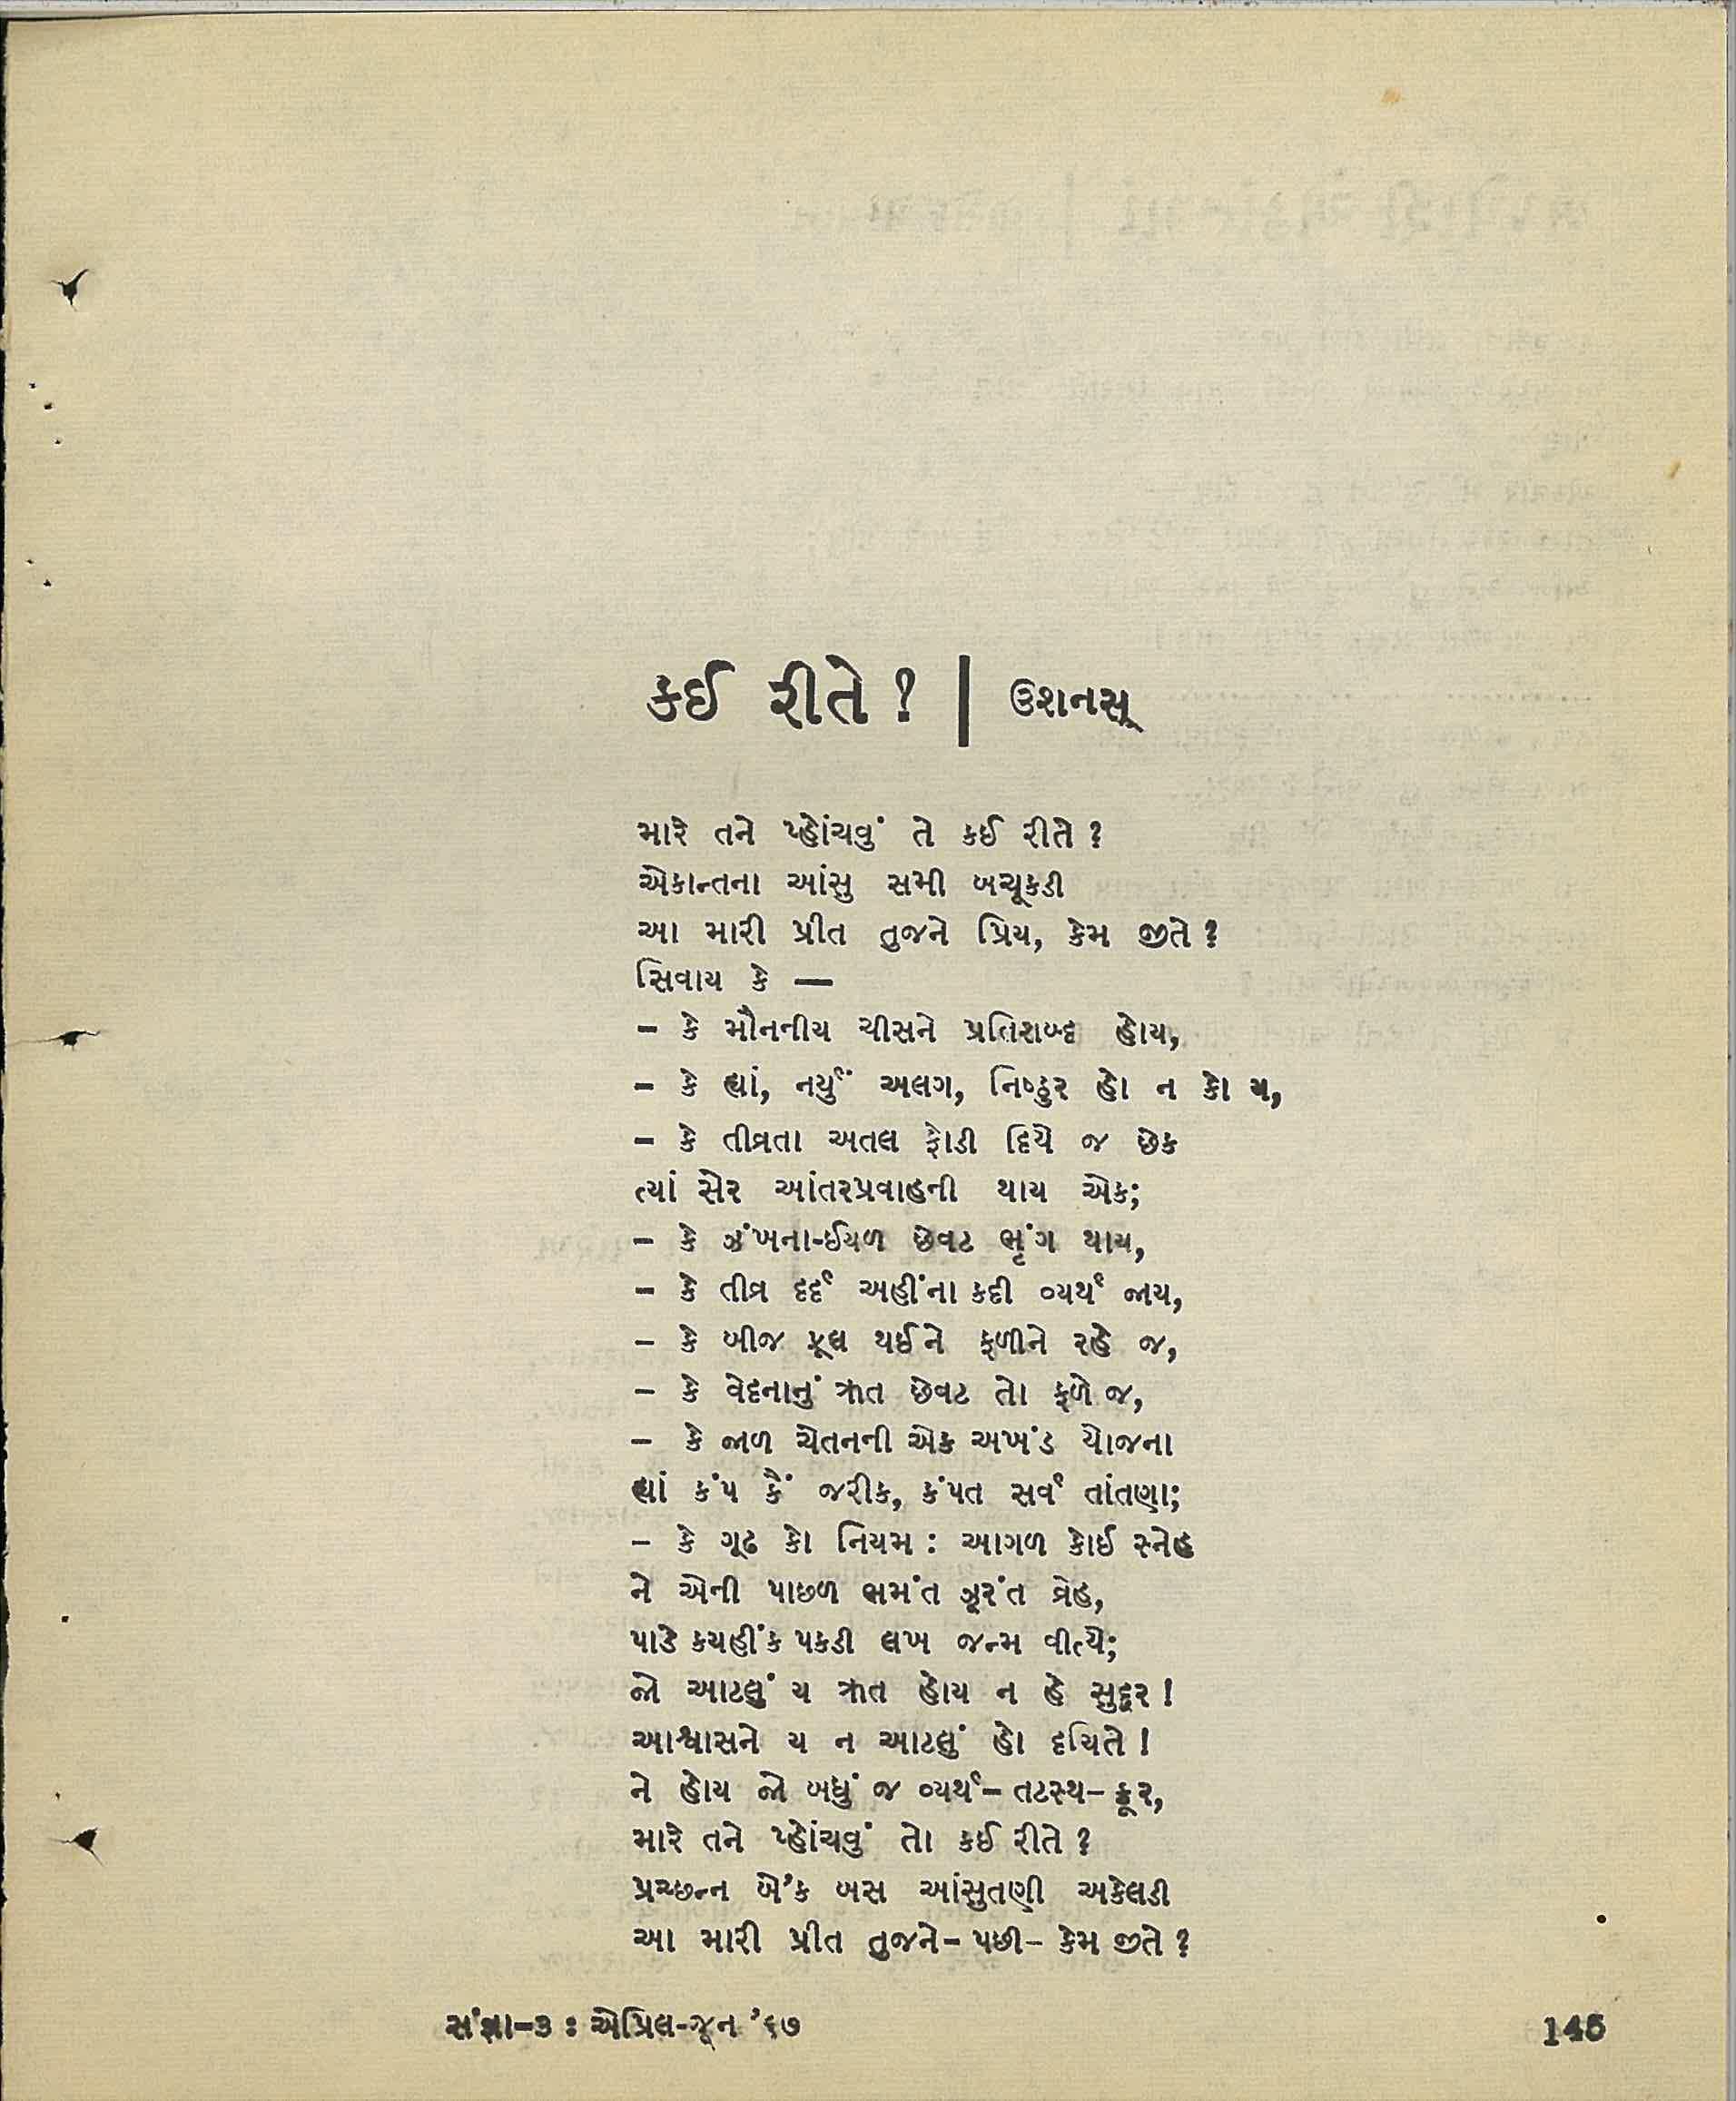 કઈ રીતે ? | ઉશનસ્
મારે તને પ્હોંચવું તે કઈ રીતે ?
એકાન્તના આંસુ સમી બચૂકડી
આ મારી પ્રીત તુજને પ્રિય, કેમ જીતે ?
સિવાય કે —
– કે મૌનનીય ચીસને પ્રતિશબ્દ હોય,
– કે હ્યાં, નર્યું અલગ, નિષ્ઠુર હો ન કો ય,
– કે તીવ્રતા અતલ ફોડી દિયે જ છેક
ત્યાં સેર આંતરપ્રવાહની થાય એક;
– કે ઝંખના-ઈયળ છેવટ ભૃંગ થાય,
– કે તીવ્ર દર્દ અહીંના કદી વ્યર્થ જાય,
– કે બીજ ફૂલ થઈને ફળીને રહે જ,
– કે વેદનાનું ઋત છેવટ તો ફળે જ,
– કે જાળ ચેતનની એક અખંડ યોજના
હ્યાં કંપ કૈં જરીક, કંપત સર્વ તાંતણા;
– કે ગૂઢ કો નિયમ : આગળ કોઈ સ્નેહ
ને એની પાછળ ભમંત ઝૂરંત વ્રેહ,
પાડે કયહીંક પકડી લખ જન્મ વીત્યે;
જો આટલું ય ઋત હોય ન હે સુદૂર !
આશ્વાસને ય ન આટલું હો દયિતે !
ને હોય જો બધું જ વ્યર્થ – તટસ્થ – ક્રૂર,
મારે તને પ્હોંચવું તો કઈ રીતે ?
પ્રચ્છન્ન બે'ક બસ આંસુતણી અકેલડી
આ મારી પ્રીત તુજને – પછી – કેમ જીતે ?
સંજ્ઞા-૩ : એપ્રિલ-જૂન '૬૭
145